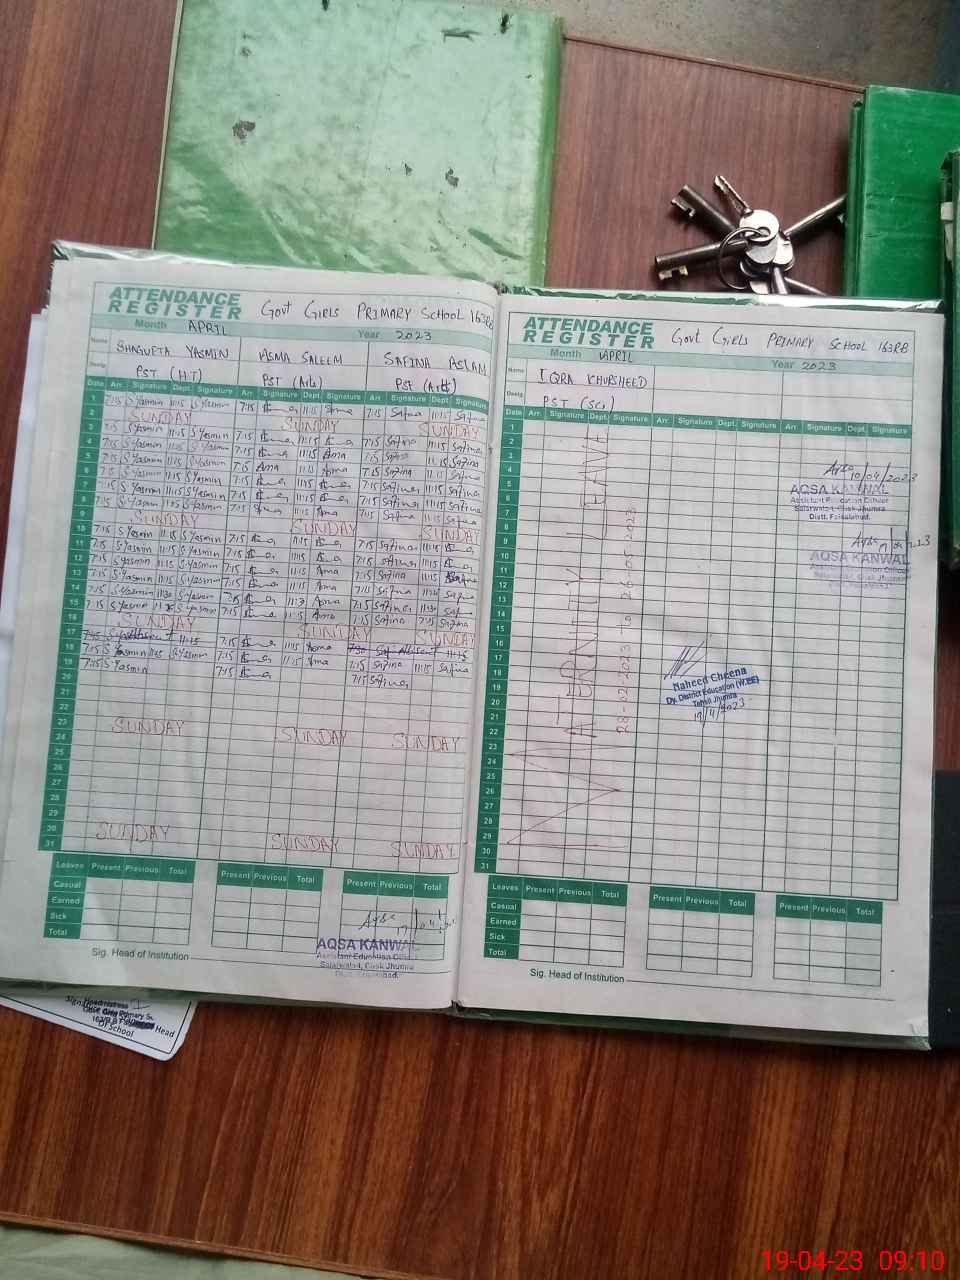 ATTENDANCE REGISTER Govt Girls PRIMARY SCHOOL 163RB
Month APRIL Year 2023
Name SHAGUFTA YASMIN ASMA SALEEM SAFINA ASLAM
Desig. PST (HT) PST (Arts) PST (Arts)
Date Arr. Signature Dept. Signature Arr. Signature Dept. Signature Arr. Signature Dept. Signature
1 7:15 S Yasmin 11:15 S Yasmin 7:15 11:15 Asma 7:15 Safina 11:15 Safina
2 SUNDAY SUNDAY SUNDAY
3 7:15 S Yasmin 11:15 S Yasmin 7:15 11:15 7:15 Safina 11:15 Safina
4 7:15 S Yasmin 11:15 S Yasmin 7:15 11:15 Asma 7:15 Safina 11:15 Safina
5 7:15 S Yasmin 11:15 S Yasmin 7:15 Asma 11:15 Asma 7:15 Safina 11:15 Safina
6 7:15 S Yasmin 11:15 S Yasmin 7:15 11:15 7:15 Safina 11:15 Safina
7 7:15 S Yasmin 11:15 S Yasmin 7:15 11:15 7:15 Safina 11:15 Safina
8 7:15 S Yasmin 11:15 S Yasmin 7:15 11:15 Asma 7:15 Safina 11:15 Safina
9 SUNDAY SUNDAY SUNDAY
10 7:15 S Yasmin 11:15 S Yasmin 7:15 11:15 7:15 Safina 11:15
11 7:15 S Yasmin 11:15 S Yasmin 7:15 11:15 7:15 Safina 11:15
12 7:15 S Yasmin 11:15 S Yasmin 7:15 11:15 Asma 7:15 Safina 11:15
13 7:15 S Yasmin 11:15 S Yasmin 7:15 11:15 Asma 7:15 Safina 11:15 Safina
14 7:15 S Yasmin 11:30 S Yasmin 7:15 11:30 Asma 7:15 Safina 11:30 Safina
15 7:15 S Yasmin S Yasmin 7:15 11:15 Asma 7:15 Safina 11:15 Safina
16 SUNDAY SUNDAY SUNDAY
17 11:15 7:15 11:15 Asma Absent 11:15
18 7:15 S Yasmin 11:15 S Yasmin 7:15 11:15 Asma 7:15 Safina 11:15 Safina
19 7:15 S Yasmin 7:15 7:15 Safina
20
21
22
23 SUNDAY SUNDAY SUNDAY
24
25
26
27
28
29
30 SUNDAY SUNDAY SUNDAY
31
Leaves Present Previous Total Present Previous Total Present Previous Total
Casual
Earned
Sick
Total
Sig. Head of Institution
AQSA KANWAL
Assistant Education Officer
Salarwala, Chak Jhumra
Distt. Faisalabad.
ATTENDANCE REGISTER Govt Girls PRIMARY SCHOOL 163RB
Month APRIL Year 2023
Name IQRA KHURSHEED
Desig. PST (Sci)
Date Arr. Signature Dept. Signature Arr. Signature Dept. Signature Arr. Signature Dept. Signature
1
2
3
4
5
6
7
8
9
10
11
12
13
14
15
16
17
18
19
20
21
22
23
24
25
26
27
28
29
30
31
MATERNITY LEAVE
28-02-2023 TO 28-05-2023
Aqsa 10/04/2023
AQSA KANWAL
Assistant Education Officer
Salarwala, Chak Jhumra
Distt. Faisalabad.
Aqsa
AQSA KANWAL
Naheed Cheena
Dy. District Education (W.EE)
Tehsil Jhumra
19/4/2023
Leaves Present Previous Total Present Previous Total Present Previous Total
Casual
Earned
Sick
Total
Sig. Head of Institution
Headmistress
Head
Of School
19-04-23 09:10